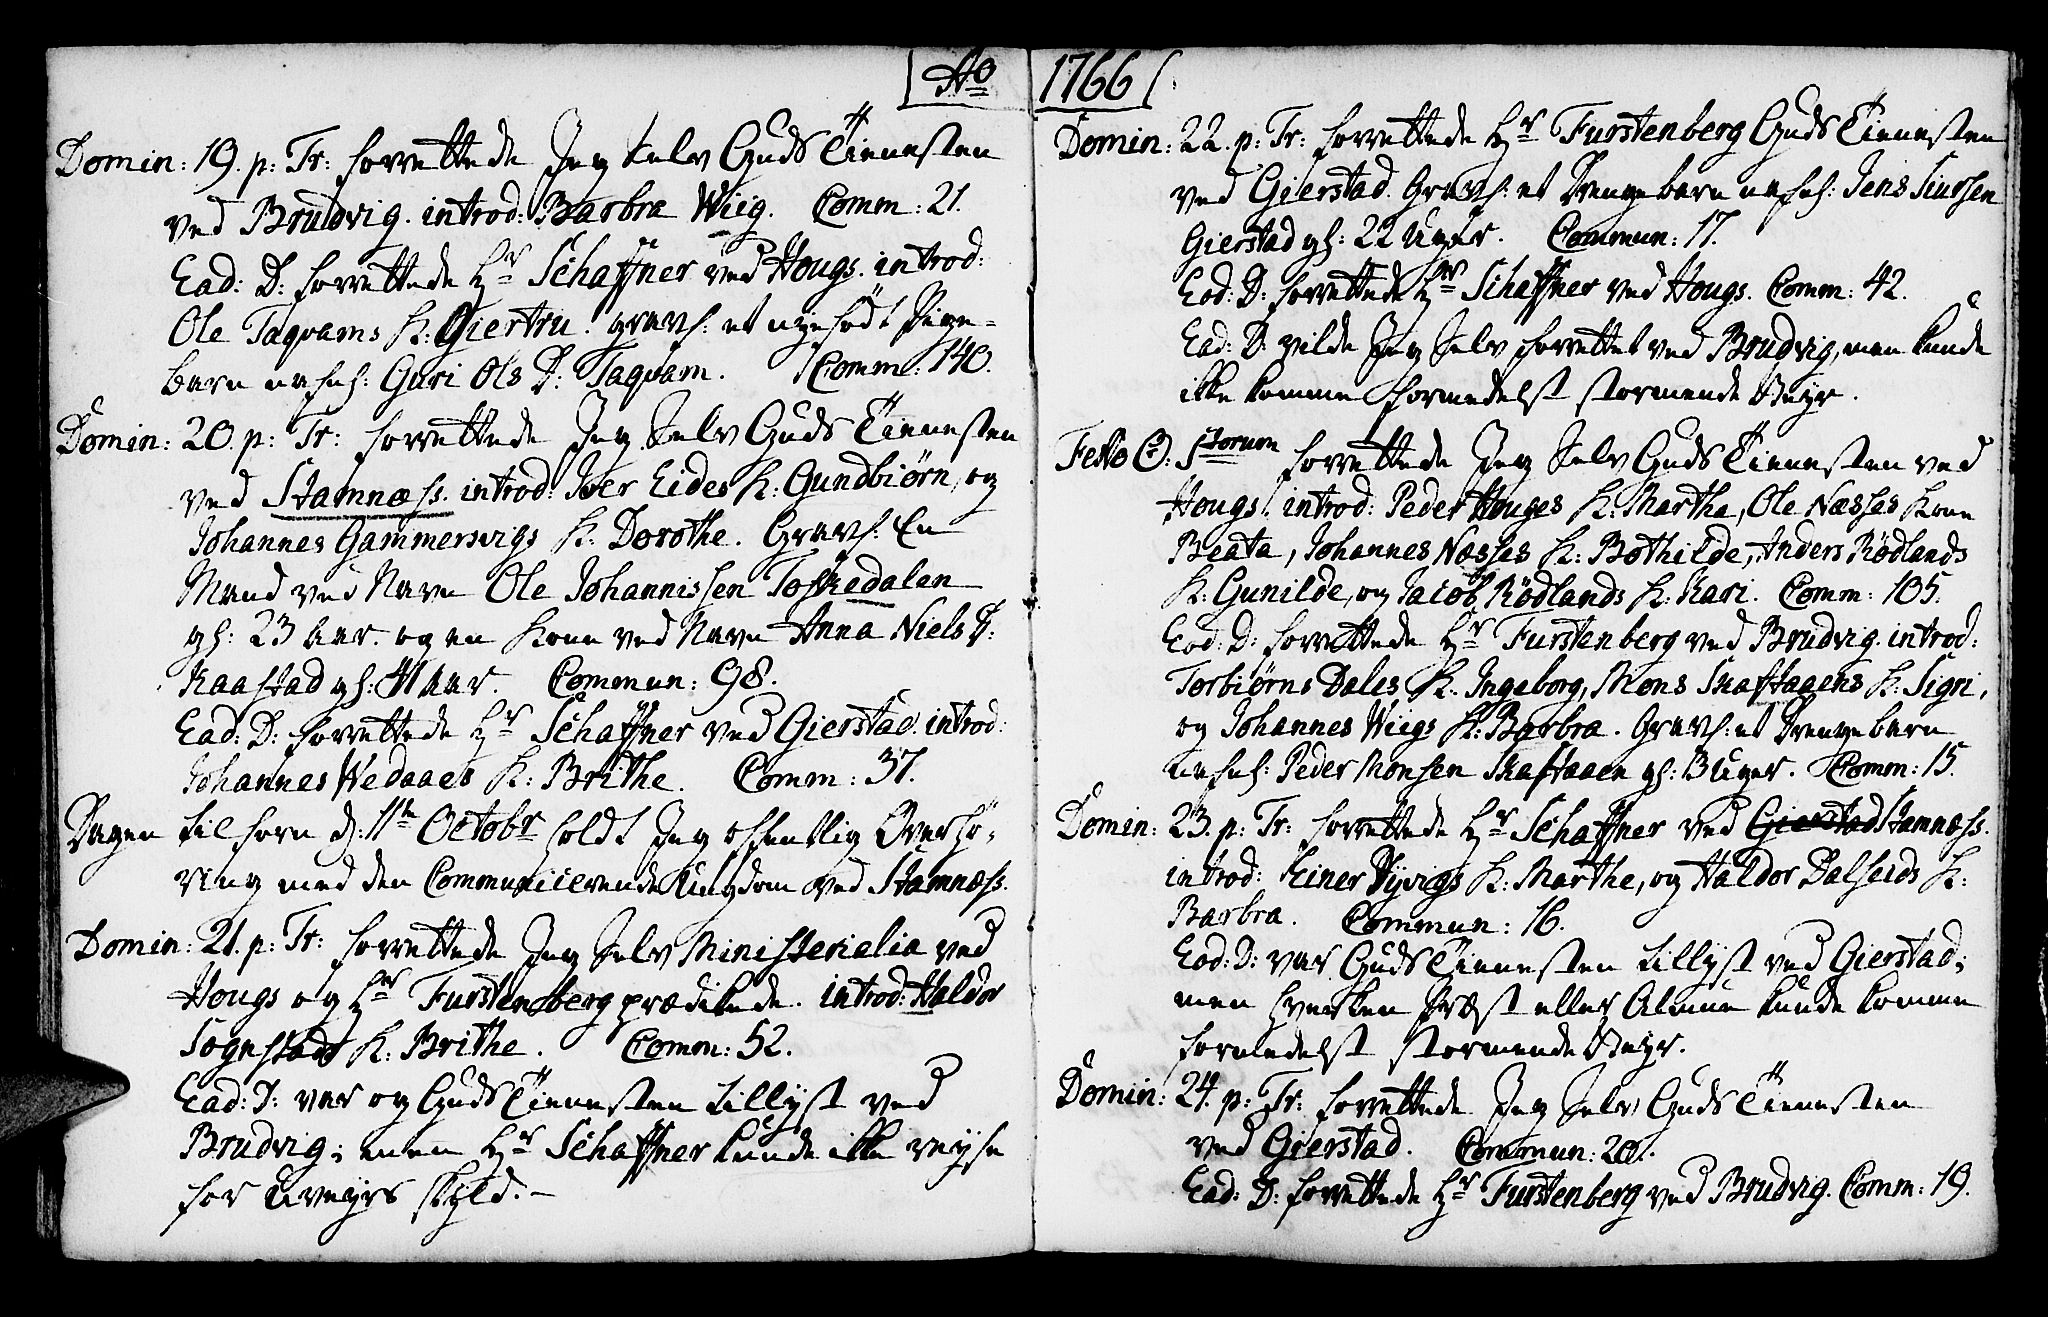 Ao 1766
Domin: 19. p: Tr: forrettede Jeg Selv Guds Tienesten
ved Brudvig. introd: Barbra Wiig. Comm: 21.
Ead: D: forrettede Hr Schaffner ved Hougs. introd:
Ole Taqvams K: Giertru. gravf: et nyefödt Pige-
barn nafnl: Guri Ols D: Taqvam. Comm: 140.
Domin: 20. p: Tr: forrettede Jeg Selv Guds Tienesten
ved Stamnæss. introd: Iver Eides K: Gundbiörn, og
Johannes Gammersvigs K: Dorothe. Gravf: En
Mand ved Navn Ole Johannissen Toskedalen
gl: 23 aar. og en Kone ved Navn Anna Niels D:
Kaastad gl: 41 aar. Commun: 98.
Ead: D: forrettede Hr Schaffner ved Gierstad. introd:
Johannes Wedaaes K: Brithe. Comm: 37.
Dagen til forn d: 11te Octobr holdt Jeg offentlig Overhö-
ring med den Communicerende Ungdom ved Stamnæss.
Domin: 21. p: Tr: forrettede Jeg Selv Ministerialia ved
Hougs og Hr Furstenberg prædikede. introd: Haldor
Sognstads K: Brithe. Comm: 52.
Ead: D: var og Guds Tienesten tillyst ved
Brudvig; men Hr Schaffner kunde ikke reyse
for Uveyrs skyld.-
Domin: 22. p: Tr: forrettede Hr Furstenberg Guds Tienesten
ved Gierstad. Gravf: et Drengebarn nafnl: Jens Siursen
Gierstad gl: 22 Uger. Commun: 17.
Eod: D: forrettede Hr Schaffner ved Hougs. Comm: 42.
Ead: D: vilde Jeg Selv forrettet ved Brudvig, men kunde
ikke komme formedelst stormende Veyr.
Festo O: Storum forrettede Jeg Selv Guds Tienesten ved
Hougs. introd: Peder Houges K: Martha, Ole Næsses Kone
Beata, Johannes Næsses K: Bothilde, Anders Rödlands
K: Gunilde, og Jacob Rödlands K: Kari. Comm: 105.
Eod: D: forrettede Hr Furstenberg ved Brudvig. introd:
Torbiörns Dales K. Ingeborg, Mons Skaftaaens K: Sigri,
og Johannes Wiigs K: Barbra. Gravf: et Drengebarn
nafnl: Peder Monsen Skaftaaen gl: 3 Uger. Comm: 15.
Domin: 23. p: Tr: forrettede Hr Schaffner ved Gierstad Stamnæss.
introd: Einer Vyvigs K: Marthe, og Haldor Dalseids K:
Barbra. Commun: 16.
Eod: D: var Guds Tienesten tillyst ved Gierstad;
men hverken Præst eller Almue kunde komme
formedelst stormende Veyr.
Domin: 24. p: Tr: forrettede Jeg Selv Guds Tienesten
ved Gierstad. Commun: 20.
Ead: D: forrettede Hr Furstenberg ved Brudvig. Comm: 19.